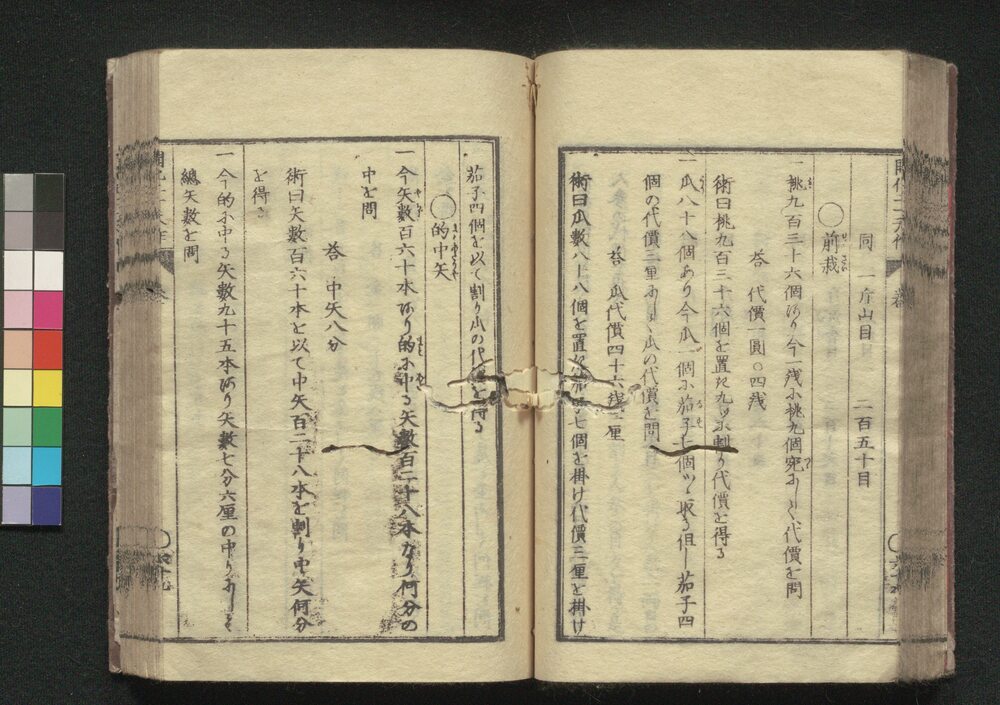 同 一斤山目 二百五十目
〇前栽
一桃九百三十六個あり今一残小桃九個宛あしく代價を問
答 代價一圓〇四残
術曰桃九百三十六個を置九ッ小割り代價を得る
一瓜八十八個あり今瓜一個小茄子七個ツヽ取る但し茄子四
個の代價三厘あし瓜の代價を問
答 瓜代價四十六残二厘
術曰瓜數八十八個を置茄子七個を掛け代價三厘を掛け
茄子四個を以て割り瓜の代價を得る
〇的中矢
一今矢數百六十本あり的小中る矢數百二十八本なり何分の
中を問
答 中矢八分
術曰矢數百六十本を以て中矢百二十八本を割り中矢何分
を得る
一今的小中る矢數九十五本あり矢數七分六厘の中りあしく
總矢數を問